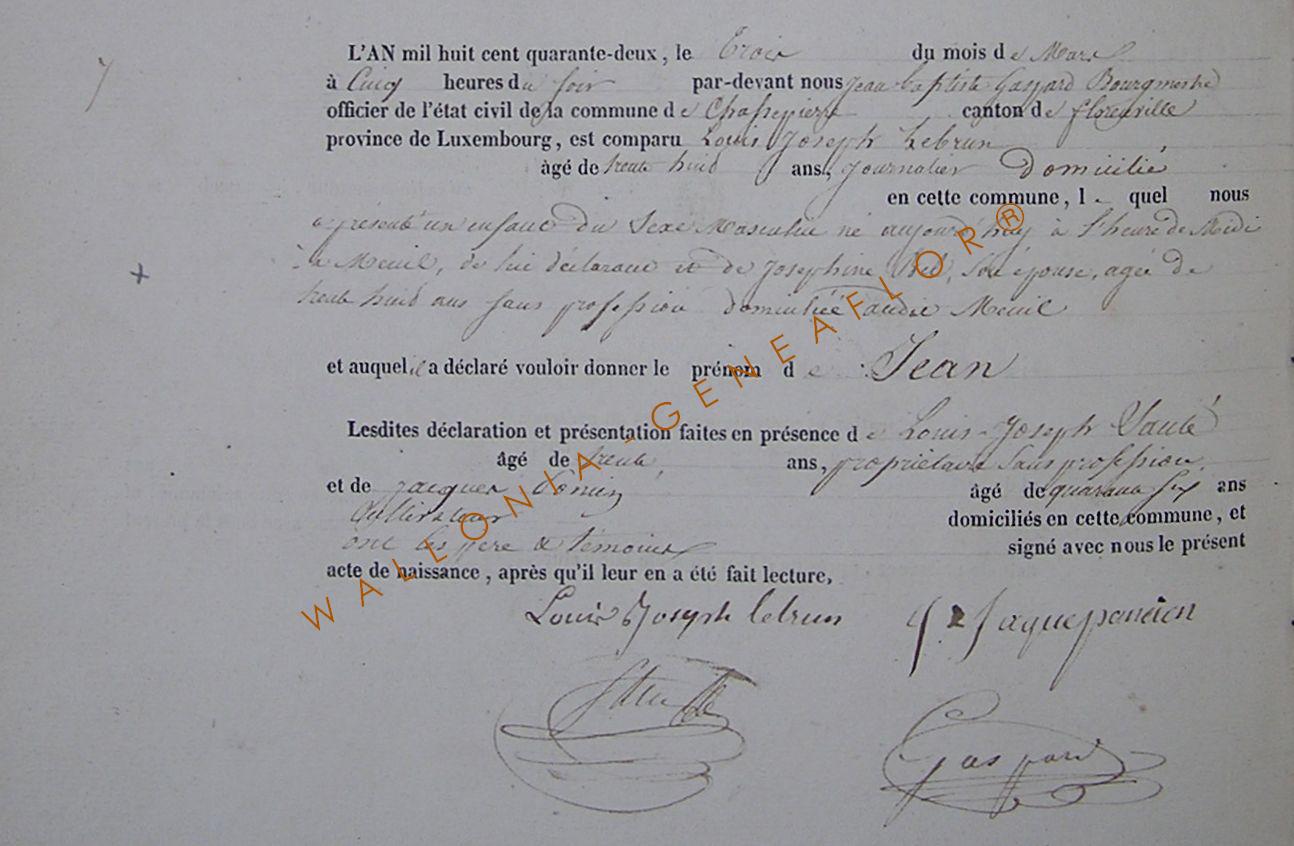 7
L'AN mil huit cent quarante-deux, le Trois du mois de Mars
à Cinq heures du soir par-devant nous jean baptiste Gaspard Bourgmestre
officier de l'état civil de la commune de Chassepierre canton de florenville
province de Luxembourg, est comparu Louis Joseph Lebrun
âgé de trente huid ans, journalier Domicilié
en cette commune, le quel nous
a présenté un enfant du Sexe Masculin né aujourd'huy à l'heure de Midi
à Menil, de lui déclarant et de Josephine son épouse, agée de
trente huid ans sans profession domiciliée audit Menil
et auquel il a déclaré vouloir donner le prénom de Jean
Lesdites déclaration et présentation faites en présence de Louis-Joseph
âgé de trente, ans, propriétaire Sans profession,
et de Jacques âgé de quarante six ans
Cultivateur domiciliés en cette commune, et
ont les père & témoins signé avec nous le présent
acte de naissance, après qu'il leur en a été fait lecture,
Louis Joseph lebrun
Gaspard
WALLONIA-GENEAFLOR®